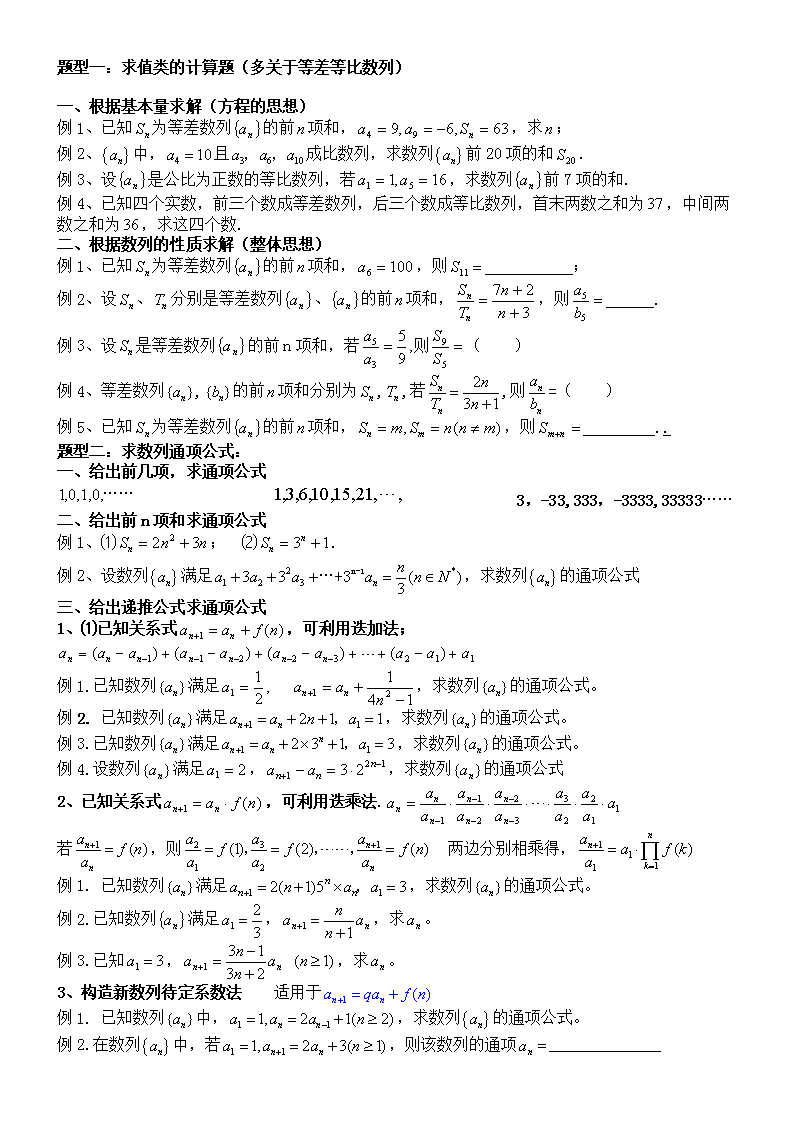 题型一：求值类的计算题（多关于等差等比数列）
一、根据基本量求解（方程的思想）
例1、已知 $S_n$ 为等差数列 $\{a_n\}$ 的前 $n$ 项和，$a_4=9,a_9=-6,S_n=63$，求 $n$；
例2、$\{a_n\}$ 中，$a_4=10$ 且 $a_3，a_6，a_{10}$ 成比数列，求数列 $\{a_n\}$ 前20项的和 $S_{20}$．
例3、设 $\{a_n\}$ 是公比为正数的等比数列，若 $a_1=1,a_5=16$，求数列 $\{a_n\}$ 前7项的和.
例4、已知四个实数，前三个数成等差数列，后三个数成等比数列，首末两数之和为37，中间两
数之和为36，求这四个数.
二、根据数列的性质求解（整体思想）
例1、已知 $S_n$ 为等差数列 $\{a_n\}$ 的前 $n$ 项和，$a_6=100$，则 $S_{11}=$___________；
例2、设 $S_n$、$T_n$ 分别是等差数列 $\{a_n\}$、$\{a_n\}$ 的前 $n$ 项和，$\frac{S_n}{T_n}=\frac{7n+2}{n+3}$，则 $\frac{a_5}{b_5}=$______.
例3、设 $S_n$ 是等差数列 $\{a_n\}$ 的前n项和，若 $\frac{a_5}{a_3}=\frac{5}{9}$,则 $\frac{S_9}{S_5}=$（　　）
例4、等差数列 $\{a_n\}$, $\{b_n\}$ 的前 $n$ 项和分别为 $S_n,T_n$,若 $\frac{S_n}{T_n}=\frac{2n}{3n+1}$,则 $\frac{a_n}{b_n}$=（　　）
例5、已知 $S_n$ 为等差数列 $\{a_n\}$ 的前 $n$ 项和，$S_n=m,S_m=n(n\neq m)$，则 $S_{m+n}=$_________..
题型二：求数列通项公式：
一、给出前几项，求通项公式
1,0,1,0,…… 1,3,6,10,15,21,⋯, 3，-33,333，-3333,33333……
二、给出前n项和求通项公式
例1、⑴ $S_n=2n^2+3n$； ⑵ $S_n=3^n+1$.
例2、设数列 $\{a_n\}$ 满足 $a_1+3a_2+3^2a_3+…+3^{n-1}a_n=\frac{n}{3}(n\in N^*)$，求数列 $\{a_n\}$ 的通项公式
三、给出递推公式求通项公式
1、⑴已知关系式 $a_{n+1}=a_n+f(n)$，可利用迭加法；
$a_n=(a_n-a_{n-1})+(a_{n-1}-a_{n-2})+(a_{n-2}-a_{n-3})+\cdots+(a_2-a_1)+a_1$
例1.已知数列 $\{a_n\}$ 满足 $a_1=\frac{1}{2}$, $a_{n+1}=a_n+\frac{1}{4n^2-1}$，求数列 $\{a_n\}$ 的通项公式。
例2. 已知数列 $\{a_n\}$ 满足 $a_{n+1}=a_n+2n+1，a_1=1$，求数列 $\{a_n\}$ 的通项公式。
例3.已知数列 $\{a_n\}$ 满足 $a_{n+1}=a_n+2\times3^n+1，a_1=3$，求数列 $\{a_n\}$ 的通项公式。
例4.设数列 $\{a_n\}$ 满足 $a_1=2$，$a_{n+1}-a_n=3\cdot2^{2n-1}$，求数列 $\{a_n\}$ 的通项公式
2、已知关系式 $a_{n+1}=a_n\cdot f(n)$，可利用迭乘法. $a_n=\frac{a_n}{a_{n-1}}\cdot\frac{a_{n-1}}{a_{n-2}}\cdot\frac{a_{n-2}}{a_{n-3}}\cdot\cdots\cdot\frac{a_3}{a_2}\cdot\frac{a_2}{a_1}\cdot a_1$
若 $\frac{a_{n+1}}{a_n}=f(n)$，则 $\frac{a_2}{a_1}=f(1)，\frac{a_3}{a_2}=f(2)，……，\frac{a_{n+1}}{a_n}=f(n)$ 两边分别相乘得，$\frac{a_{n+1}}{a_1}=a_1\cdot\prod_{k=1}^{n}f(k)$
例1. 已知数列 $\{a_n\}$ 满足 $a_{n+1}=2(n+1)5^n\times a_n，a_1=3$，求数列 $\{a_n\}$ 的通项公式。
例2.已知数列 $\{a_n\}$ 满足 $a_1=\frac{2}{3}$，$a_{n+1}=\frac{n}{n+1}a_n$，求 $a_n$。
例3.已知 $a_1=3$，$a_{n+1}=\frac{3n-1}{3n+2}a_n$ $(n\geq1)$，求 $a_n$。
3、构造新数列待定系数法 适用于 $a_{n+1}=qa_n+f(n)$
例1. 已知数列 $\{a_n\}$ 中，$a_1=1,a_n=2a_{n-1}+1(n\geq2)$，求数列 $\{a_n\}$ 的通项公式。
例2.在数列 $\{a_n\}$ 中，若 $a_1=1,a_{n+1}=2a_n+3(n\geq1)$，则该数列的通项 $a_n=$______________